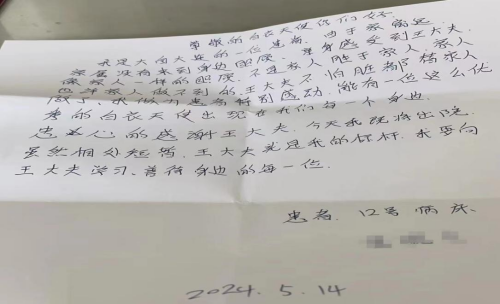 尊敬的白衣天使你们好
我是大白大夫的一位患者，由于家离远
亲属没有来到身边照顾，亲身感受到王大夫
像家人一样的照顾，不是家人胜于家人，家人
也许家人做不到的，王大夫不怕脏都替我
做了，我做为患者特别感动，能有一位这么优
秀的白衣天使出现在我们每一个身边
患者心的感谢王大夫，今天我既将出院
虽然相处短暂，王大夫就是我的榜样，我要向
王大夫学习、善待身边的每一位。
患者，12号病床、
2024.5.14